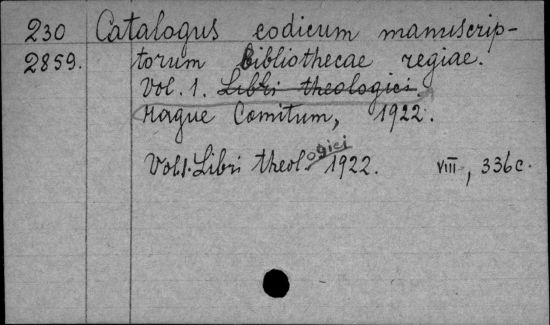 230 Catalogus codicum manuscrip-
2859. torum bibliothecae regiae.
Vol. 1. Libri theologici.
Hague Comitum, 1922.
Vol 1. Libri theologici 1922. VIII, 336 c.